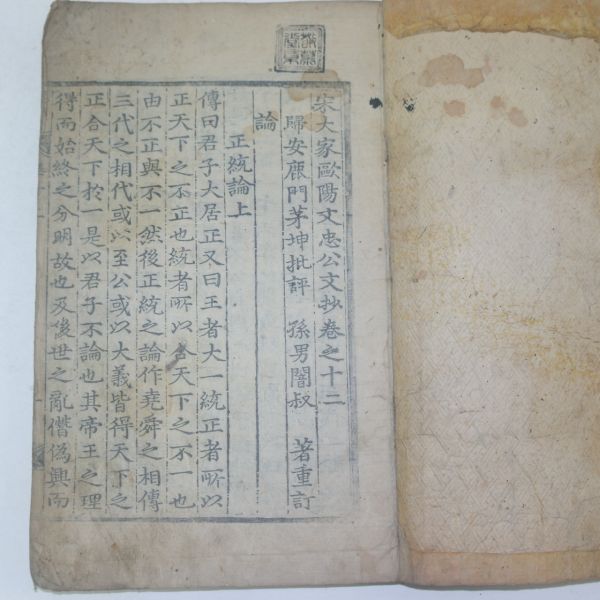 宋大家歐陽文忠公文抄卷之十二
歸安鹿門茅坤批評 孫男闇叔 著重訂
論
正統論上
傳曰君子大居正又曰王者大一統正者所以
正天下之不正也統者所以合天下之不一也
由不正與不一然後正統之論作堯舜之相傳
三代之相代或以至公或以大義皆得天下之
正合天下於一是以君子不論也其帝王之理
得而始終之分明故也及後世之亂僭僞興而